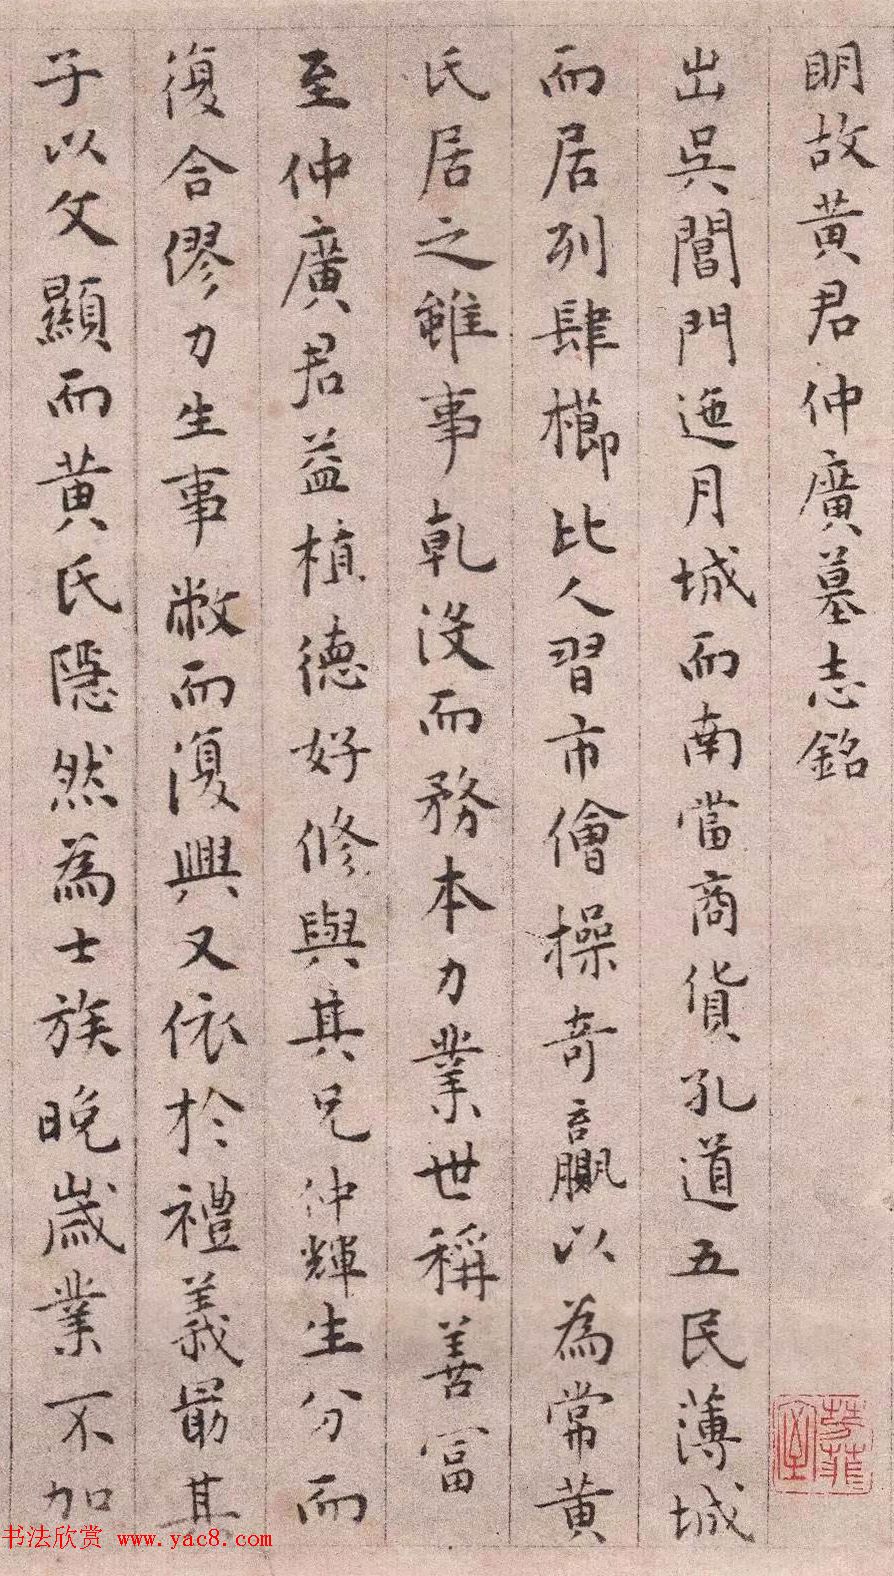 明故黃君仲廣墓志銘
出吳閶門迤月城而南當商貨孔道五民薄城
而居列肆櫛比人習市儈操奇贏以為常黃
氏居之雖事乹没而務本力業世稱善富
至仲廣君益植德好修與其兄仲輝生分而
復合僇力生事敝而復興又依於禮義最其
子以文顯而黃氏隱然為士族晚歲業不加
书法欣赏 www.yac8.com